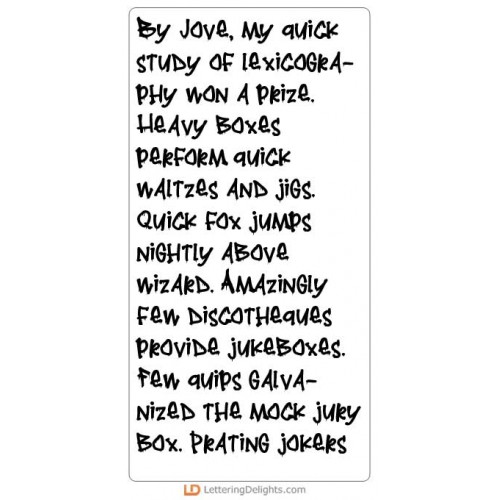 By Jove, my quick
study of lexicogra-
phy won a prize.
Heavy boxes
perform quick
waltzes and jigs.
Quick fox jumps
nightly above
wizard. Amazingly
few discotheques
provide jukeboxes.
Few quips galva-
nized the mock jury
box. Prating jokers
LD LetteringDelights.com